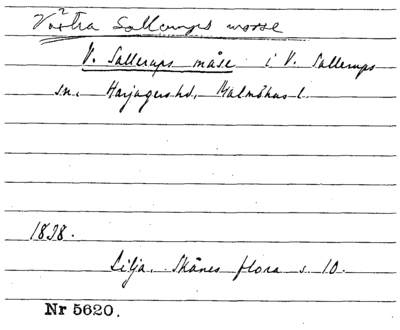 Västra Sallerups mosse
V. Sallerups måse i V. Sallerups
sn, Harjagers hd, Malmöhus l.
1838.
Lilja, Skånes flora s. 10.
Nr 5620.